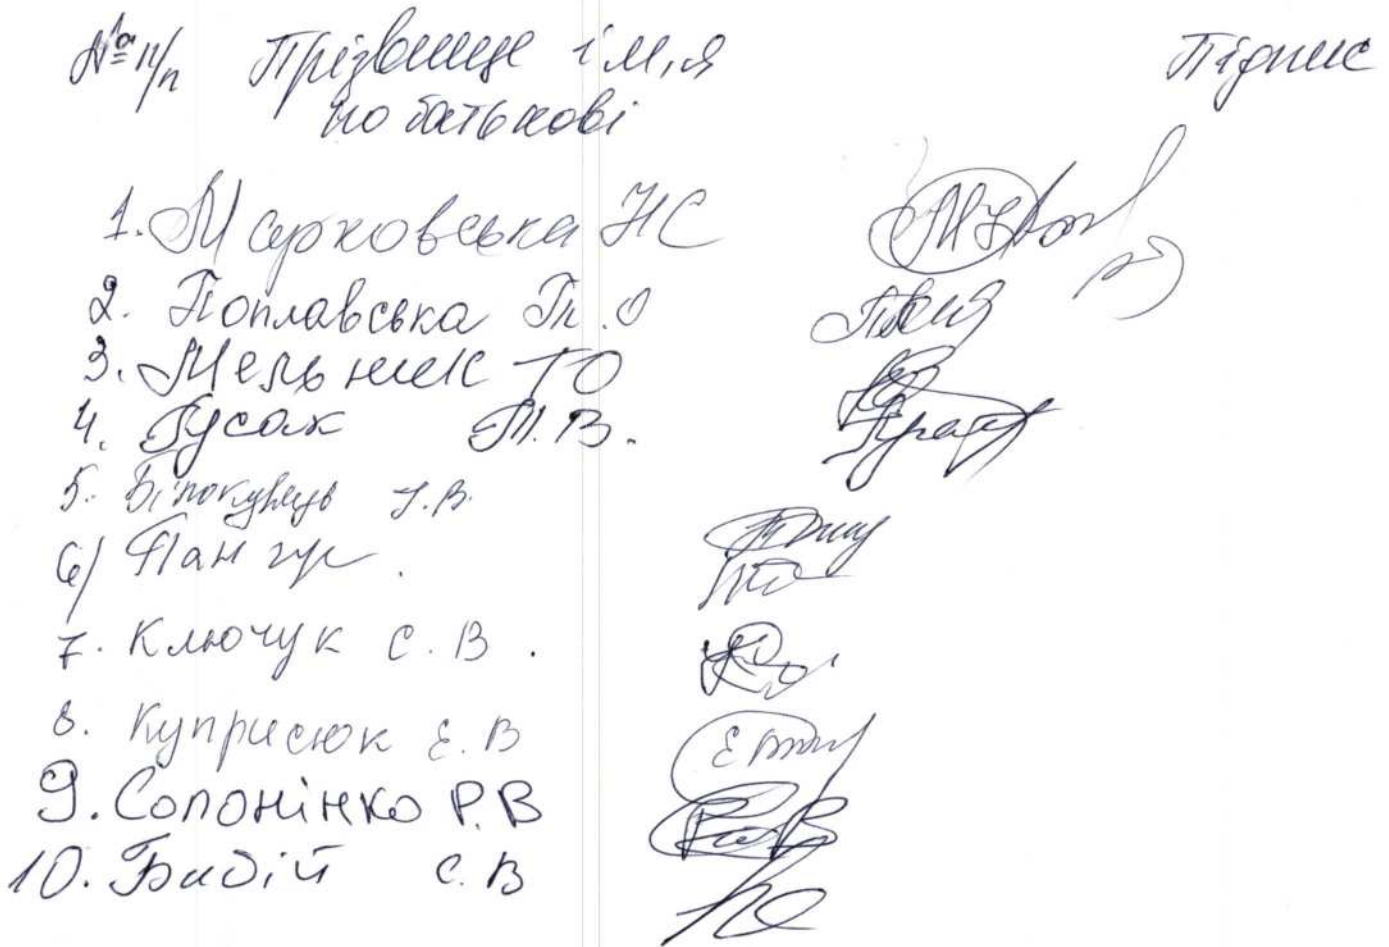 № п/п Прізвище ім,я Підпис
по батькові
1. Марковська НС
2. Поплавська Т.О
3. Мельник ТО
4. Гусак Т.В.
5. Білокунець І.В.
6) Пангур.
7. Ключук С.В.
8. Куприсюк Е.В
9. Солонінко Р.В
10. Бабій С.В